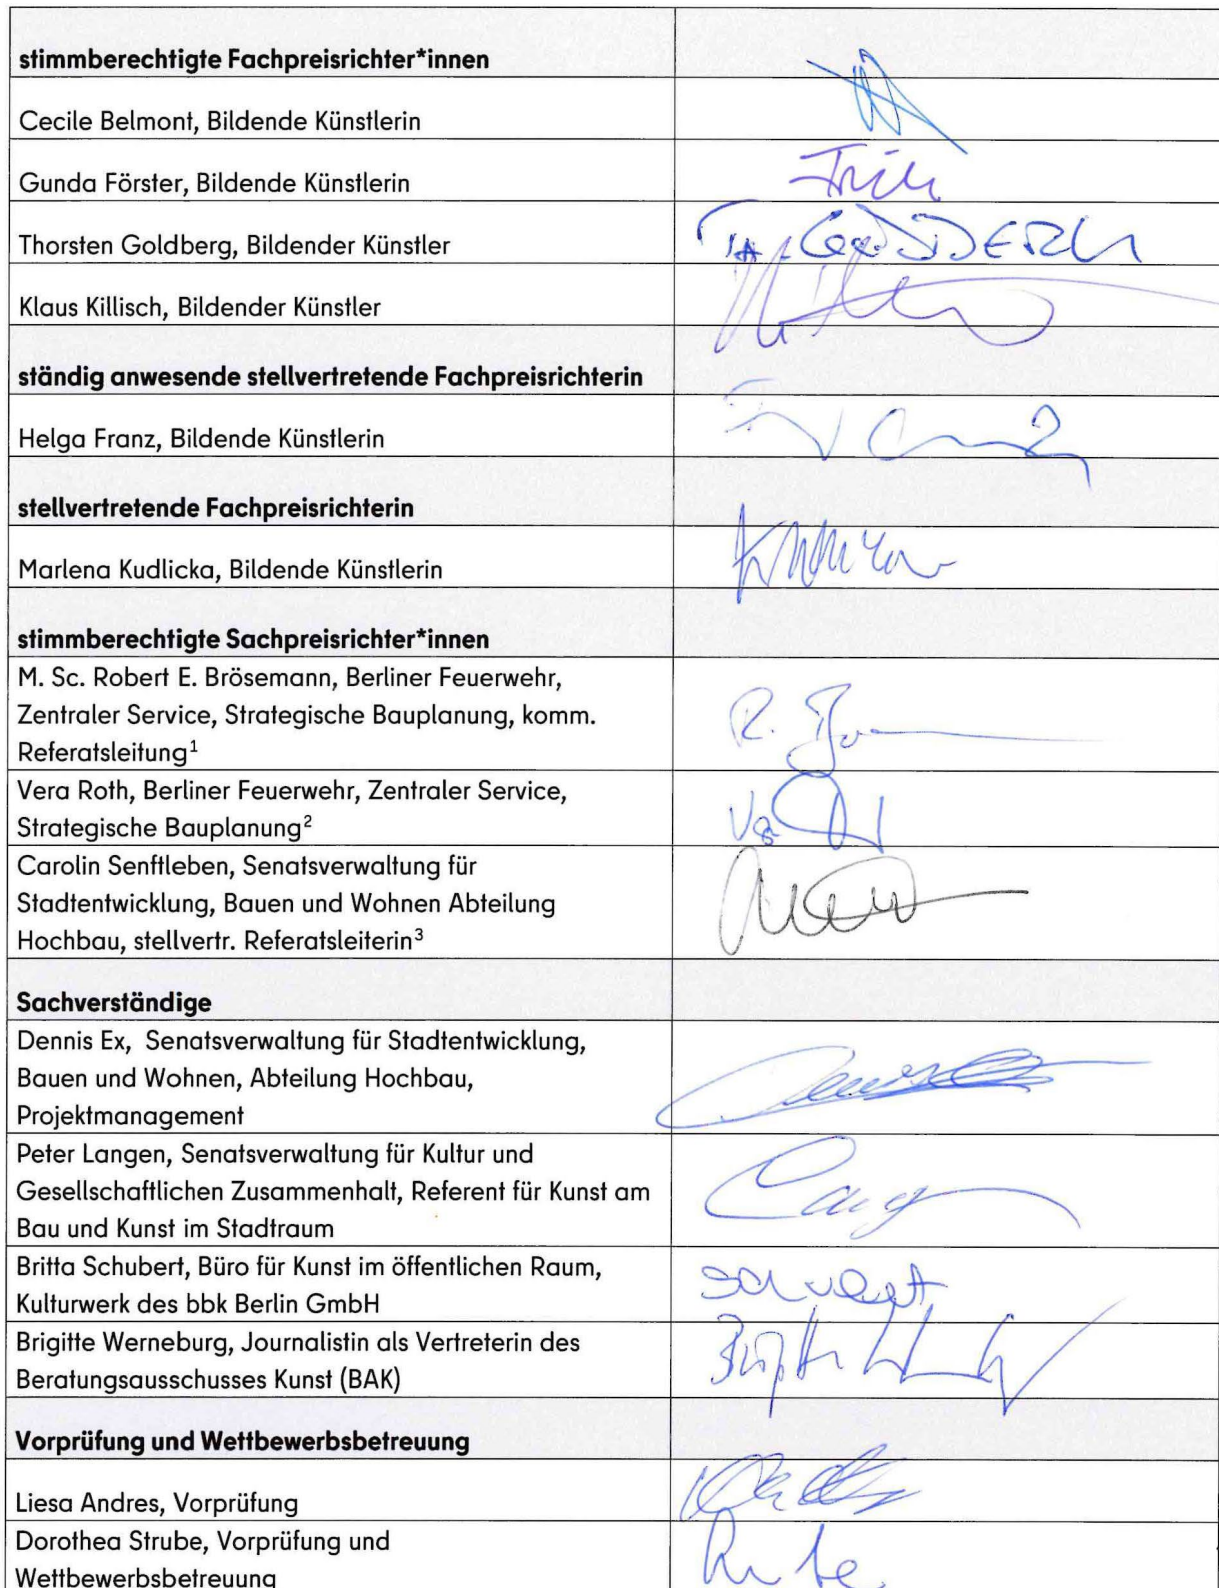 stimmberechtigte Fachpreisrichter*innen
Cecile Belmont, Bildende Künstlerin
Gunda Förster, Bildende Künstlerin
Thorsten Goldberg, Bildender Künstler
Klaus Killisch, Bildender Künstler
ständig anwesende stellvertretende Fachpreisrichterin
Helga Franz, Bildende Künstlerin
stellvertretende Fachpreisrichterin
Marlena Kudlicka, Bildende Künstlerin
stimmberechtigte Sachpreisrichter*innen
M. Sc. Robert E. Brösemann, Berliner Feuerwehr,
Zentraler Service, Strategische Bauplanung, komm.
Referatsleitung¹
R.
Vera Roth, Berliner Feuerwehr, Zentraler Service,
Strategische Bauplanung²
Carolin Senftleben, Senatsverwaltung für
Stadtentwicklung, Bauen und Wohnen Abteilung
Hochbau, stellvertr. Referatsleiterin³
Sachverständige
Dennis Ex, Senatsverwaltung für Stadtentwicklung,
Bauen und Wohnen, Abteilung Hochbau,
Projektmanagement
Peter Langen, Senatsverwaltung für Kultur und
Gesellschaftlichen Zusammenhalt, Referent für Kunst am
Bau und Kunst im Stadtraum
Britta Schubert, Büro für Kunst im öffentlichen Raum,
Kulturwerk des bbk Berlin GmbH
Brigitte Werneburg, Journalistin als Vertreterin des
Beratungsausschusses Kunst (BAK)
Vorprüfung und Wettbewerbsbetreuung
Liesa Andres, Vorprüfung
Dorothea Strube, Vorprüfung und
Wettbewerbsbetreuung